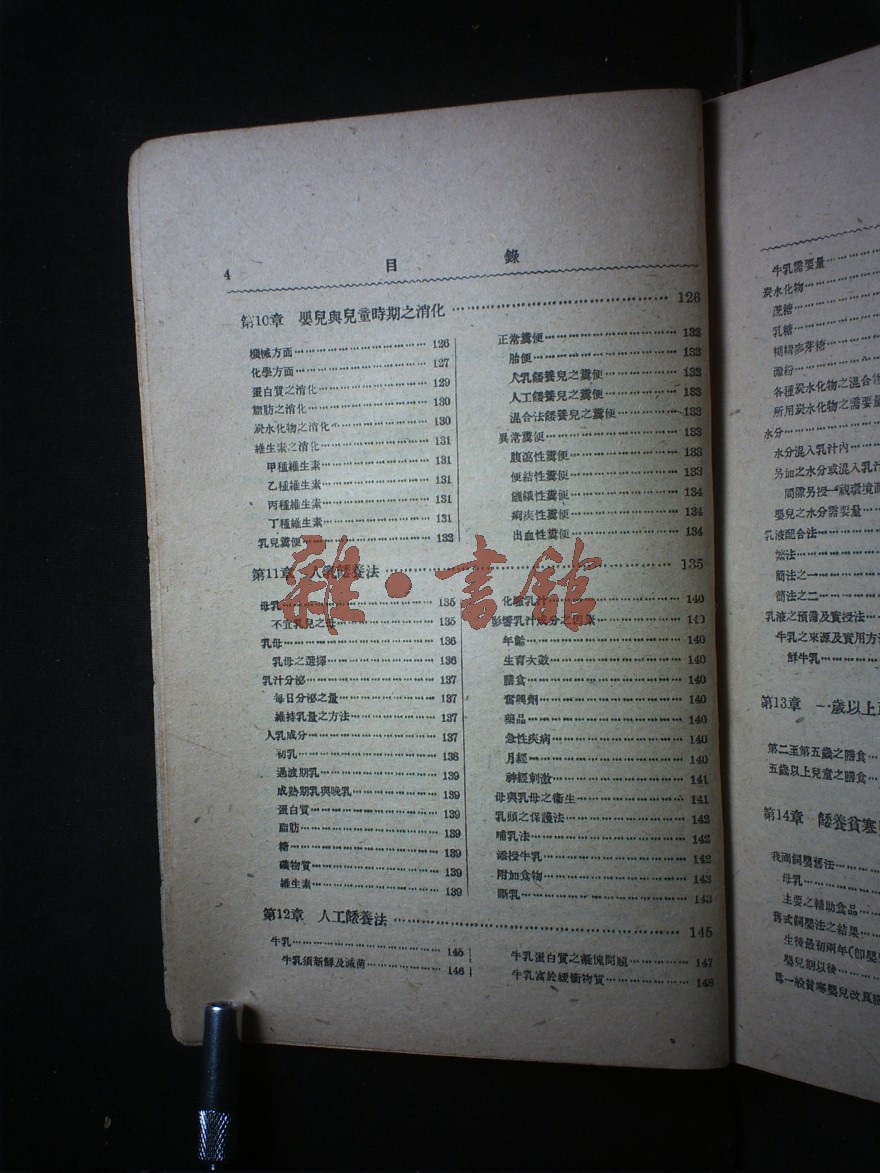 4
目 錄
第10章 嬰兒與兒童時期之消化 126
機械方面 126
化學方面 127
蛋白質之消化 129
脂肪之消化 130
炭水化物之消化 130
維生素之消化 131
甲種維生素 131
乙種維生素 131
丙種維生素 131
丁種維生素 131
乳兒糞便 132
正常糞便 132
胎便 132
人乳餧養兒之糞便 132
人工餧養兒之糞便 133
混合法餧養兒之糞便 133
異常糞便 133
腹瀉性糞便 133
便結性糞便 133
饑餓性糞便 134
痢疾性糞便 134
出血性糞便 134
第11章 人乳餧養法 135
母乳 135
不宜乳兒之母 135
乳母 136
乳母之選擇 136
乳汁分泌 137
每日分泌之量 137
維持乳量之方法 137
人乳成分 137
初乳 138
過渡期乳 139
成熟期乳與晚乳 139
蛋白質 139
脂肪 139
糖 139
礦物質 139
維生素 139
化驗乳汁 140
影響乳汁成分之因素 140
年齡 140
生育次數 140
膳食 140
奮興劑 140
藥品 140
急性疾病 140
月經 140
神經刺激 141
母與乳母之衞生 141
乳頭之保護法 142
哺乳法 142
添授牛乳 142
附加食物 143
斷乳 143
第12章 人工餧養法 145
牛乳 145
牛乳須新鮮及滅菌 146
牛乳蛋白質之凝塊問題 147
牛乳富於緩衝物質 148
雜·書館
牛乳需要量
炭水化物
蔗糖
乳糖
糊精麥芽糖
澱粉
各種炭水化物之混合物
所用炭水化物之需要量
水分
水分混入乳汁內
另加之水分或混入乳汁
間隙另授—視環境而
嬰兒之水分需要量
乳液配合法
煞法
簡法之一
簡法之二
乳液之預備及實授法
牛乳之來源及實用方法
鮮牛乳
第13章 一歲以上
第二至第五歲之膳食
五歲以上兒童之膳食
第14章 餧養貧寒
我國飼嬰舊法
母乳
主要之輔助食品
舊式飼嬰法之結果
生後最初兩年(即嬰
嬰兒期以後
爲一般貧寒嬰兒改良膳